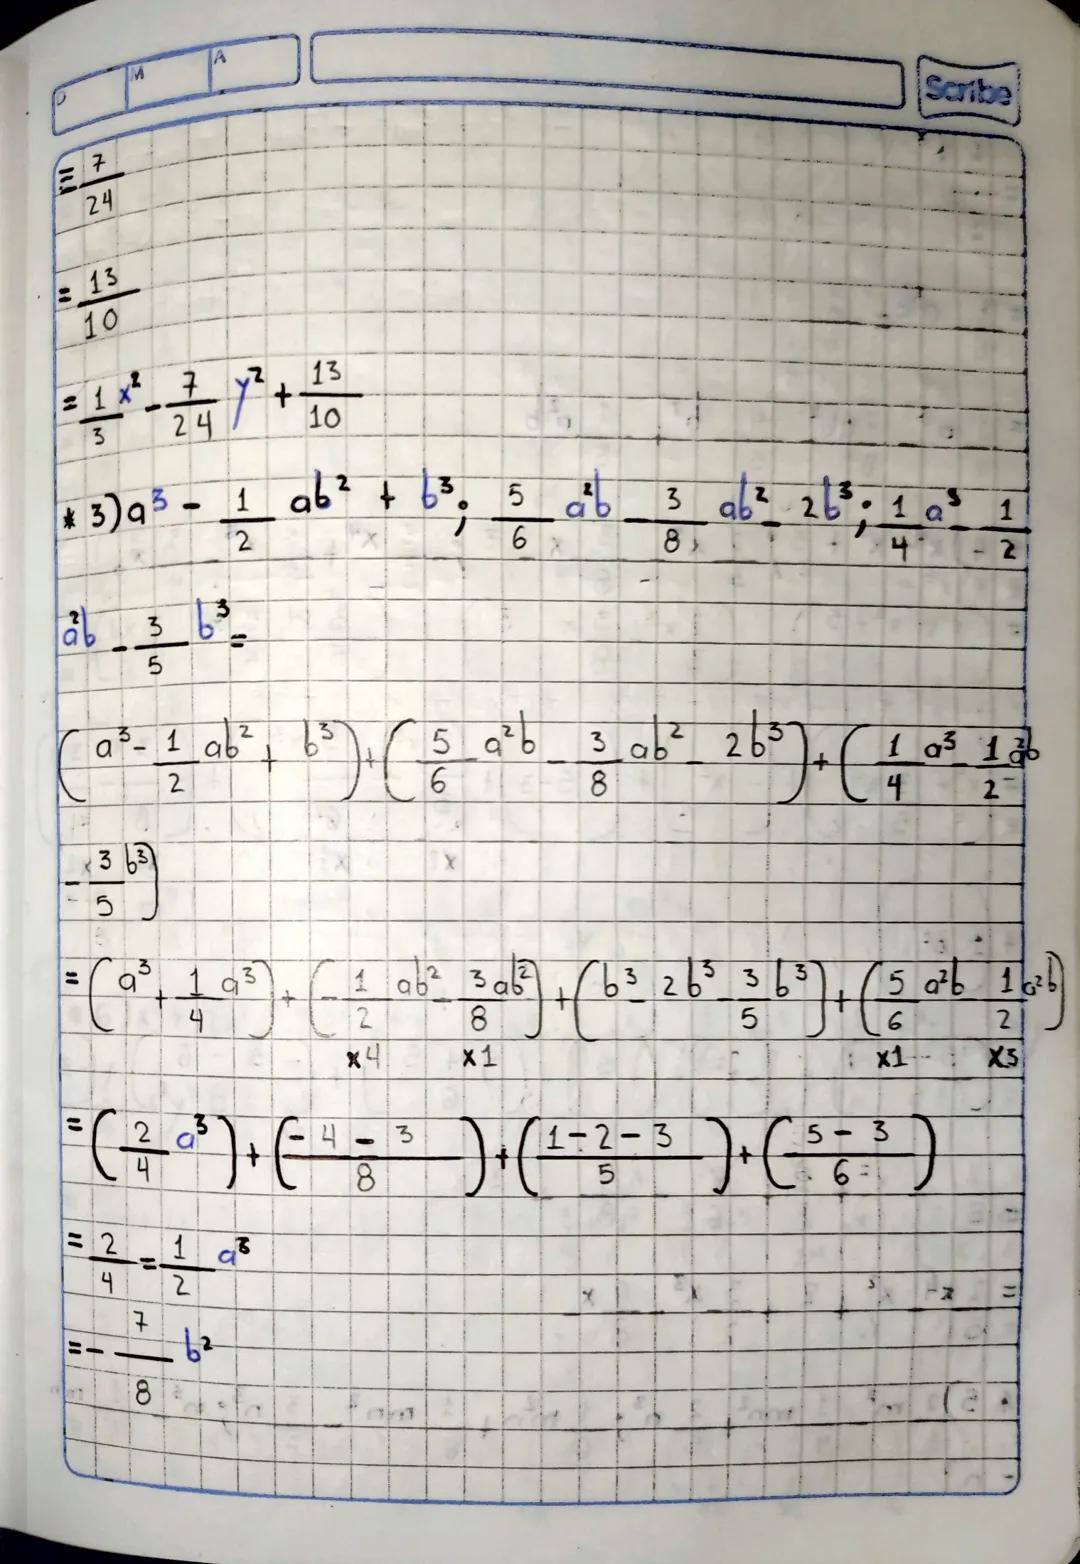 D M A Scribe
= 7/24
= 13/10
= 1/3 x² - 7/24 y² + 13/10
* 3) a³ - 1/2 ab² + b³; 5/6 a²b - 3/8 ab² - 2b³; 1/4 a³ - 1/2
a²b - 3/5 b³ =
(a³ - 1/2 ab² + b³) + (5/6 a²b - 3/8 ab² - 2b³) + (1/4 a³ - 1/2 a²b
- 3/5 b³)
= (a³ + 1/4 a³) + (- 1/2 ab² - 3/8 ab²) + (b³ - 2b³ - 3/5 b³) + (5/6 a²b - 1/2 a²b)
x4 x1 x1 x3
= (2/4 a³) + (-4-3/8) + (1-2-3/5) + (5-3/6)
= 2/4 = 1/2 a³
= - 7/8 b²